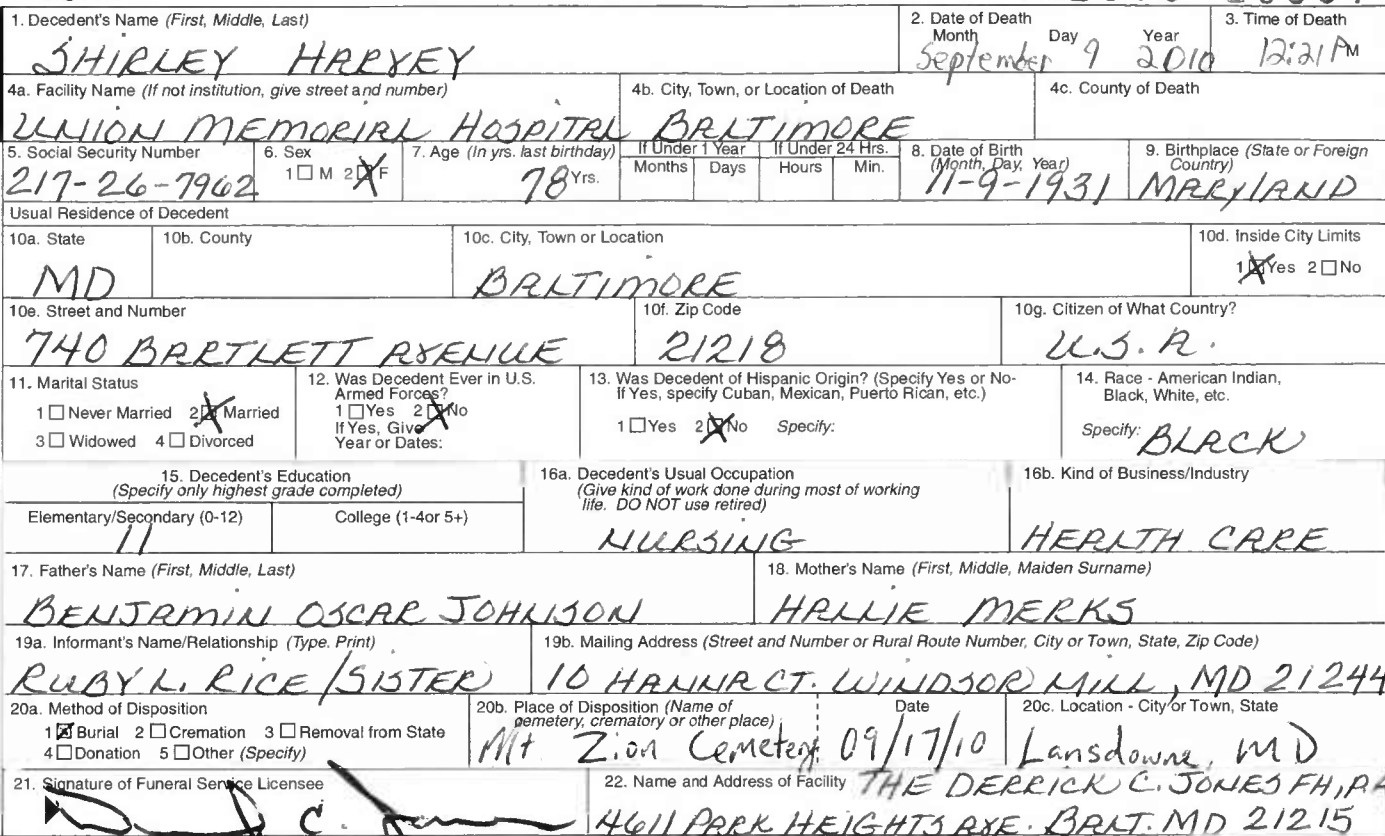 1. Decedent's Name (First, Middle, Last)
SHIRLEY HARVEY
2. Date of Death
Month Day Year
September 9 2010
3. Time of Death
12:21 PM
4a. Facility Name (If not institution, give street and number)
UNION MEMORIAL HOSPITAL
4b. City, Town, or Location of Death
BALTIMORE
4c. County of Death
5. Social Security Number
217-26-7962
6. Sex
1 ☐ M 2 ☒ F
7. Age (In yrs. last birthday)
78 Yrs.
If Under 1 Year
Months Days
If Under 24 Hrs.
Hours Min.
8. Date of Birth
(Month, Day, Year)
11-9-1931
9. Birthplace (State or Foreign
Country)
MARYLAND
Usual Residence of Decedent
10a. State
MD
10b. County
10c. City, Town or Location
BALTIMORE
10d. Inside City Limits
1 ☒ Yes 2 ☐ No
10e. Street and Number
740 BARTLETT AVENUE
10f. Zip Code
21218
10g. Citizen of What Country?
U.S.A.
11. Marital Status
1 ☐ Never Married 2 ☒ Married
3 ☐ Widowed 4 ☐ Divorced
12. Was Decedent Ever in U.S.
Armed Forces?
1 ☐ Yes 2 ☒ No
If Yes, Give
Year or Dates:
13. Was Decedent of Hispanic Origin? (Specify Yes or No-
If Yes, specify Cuban, Mexican, Puerto Rican, etc.)
1 ☐ Yes 2 ☒ No Specify:
14. Race - American Indian,
Black, White, etc.
Specify: BLACK
15. Decedent's Education
(Specify only highest grade completed)
Elementary/Secondary (0-12)
11
College (1-4or 5+)
16a. Decedent's Usual Occupation
(Give kind of work done during most of working
life. DO NOT use retired)
NURSING
16b. Kind of Business/Industry
HEALTH CARE
17. Father's Name (First, Middle, Last)
BENJAMIN OSCAR JOHNSON
18. Mother's Name (First, Middle, Maiden Surname)
HALLIE MERKS
19a. Informant's Name/Relationship (Type. Print)
RUBY L. RICE / SISTER
19b. Mailing Address (Street and Number or Rural Route Number, City or Town, State, Zip Code)
10 HANNA CT. WINDSOR MILL, MD 21244
20a. Method of Disposition
1 ☒ Burial 2 ☐ Cremation 3 ☐ Removal from State
4 ☐ Donation 5 ☐ Other (Specify)
20b. Place of Disposition (Name of
cemetery, crematory or other place)
Mt Zion Cemetery
Date
09/17/10
20c. Location - City or Town, State
Lansdowne, MD
21. Signature of Funeral Service Licensee
22. Name and Address of Facility THE DERRICK C. JONES FH, P.A
4611 PARK HEIGHTS AVE. BALT. MD 21215